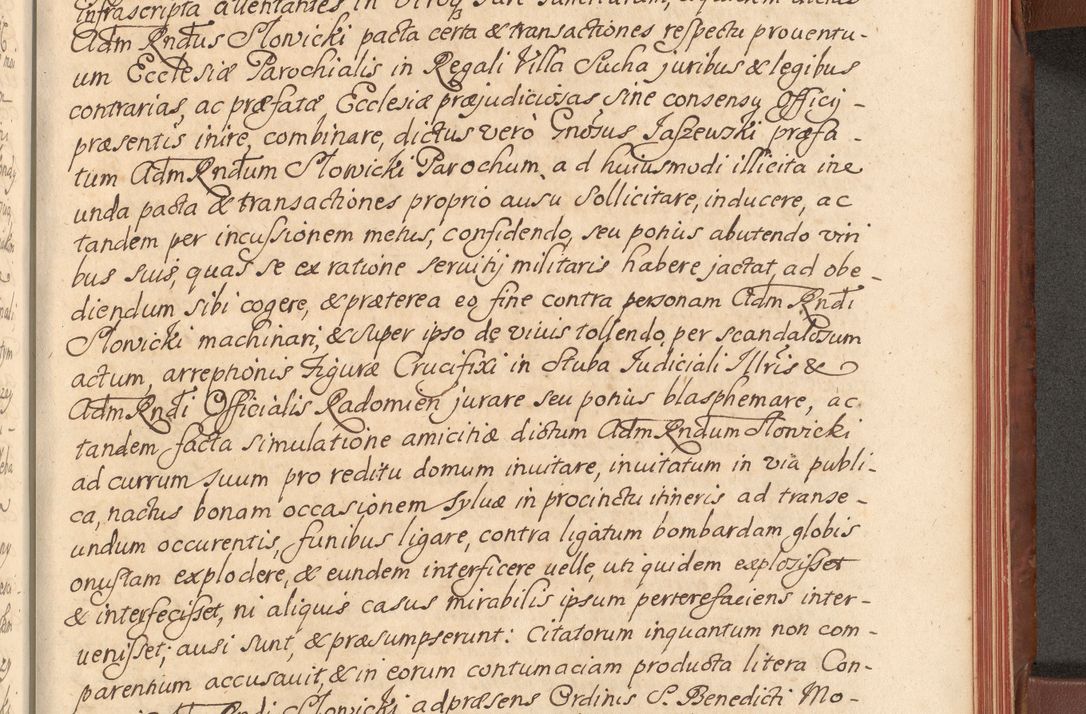 infrascripta attentantes in Utroq Jure Sancitarum, siquidem dictus
Adm Rndus Słowicki pacta certa & transactiones respectu prouentu-
um Ecclesiæ Parochialis in Regali Villa Sucha juribus & legibus
contrarias, ac præfatæ Ecclesiæ præjudiciosas sine consensu Officij
præsentis inire, combinare, dictus verò Gnosus Jaszewski præfa-
tum Adm Rndum Słowicki Parochum ad huiusmodi illicita ine
unda pacta & transactiones proprio ausu sollicitare, inducere, ac
tandem per incussionem metus, confidendo, seu potius abutendo viri
bus suis, quas se ex ratione seruitij militaris habere jactat, ad obe-
diendum sibi cogere, & præterea eo fine contra personam Adm Rndi
Słowicki machinari, & super ipso de viuis tollendo per scandalosum
actum, arreptionis Figuræ Crucifixi in Stuba Judiciali Illris &
Adm Rndi Officialis Radomien jurare seu potius blasphemare, ac
tandem facta simulatione amicitiæ dictum Adm Rndum Słowicki
ad currum suum pro reditu domum inuitare, inuitatum in via publi-
ca, nactus bonam occasionem syluæ in procinctu itineris ad transe-
undum occurentis, funibus ligare, contra ligatum bombardam globis
onustam explodere, & eundem interficere uelle, uti quidem explosisset
& interfecisset, ni aliquis casus mirabilis ipsum perterefaciens inter-
uenisset, ausi sunt, & præsumpserunt: Citatorum inquantum non com-
parentium accusauit, & in eorum contumaciam producta litera Con-
Adm Rndi Słowicki ad præsens Ordinis S. Benedicti Mo-